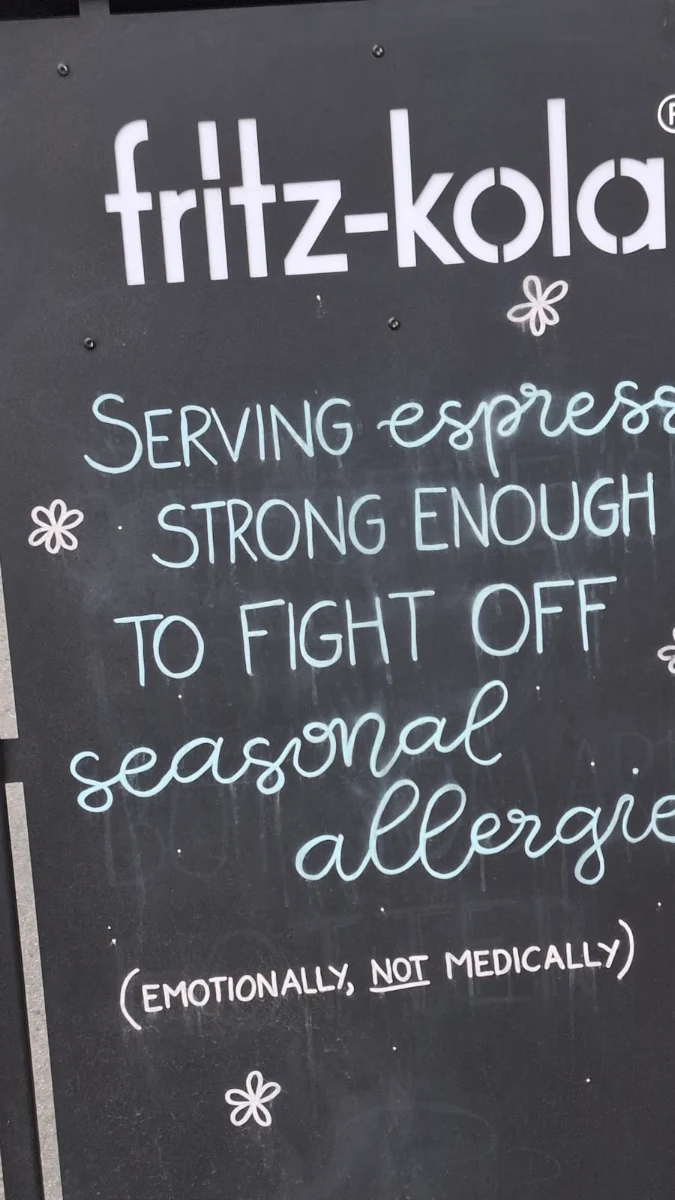 fritz-kola®
SERVING espress
STRONG ENOUGH
TO FIGHT OFF
seasonal
allergie
(EMOTIONALLY, NOT MEDICALLY)